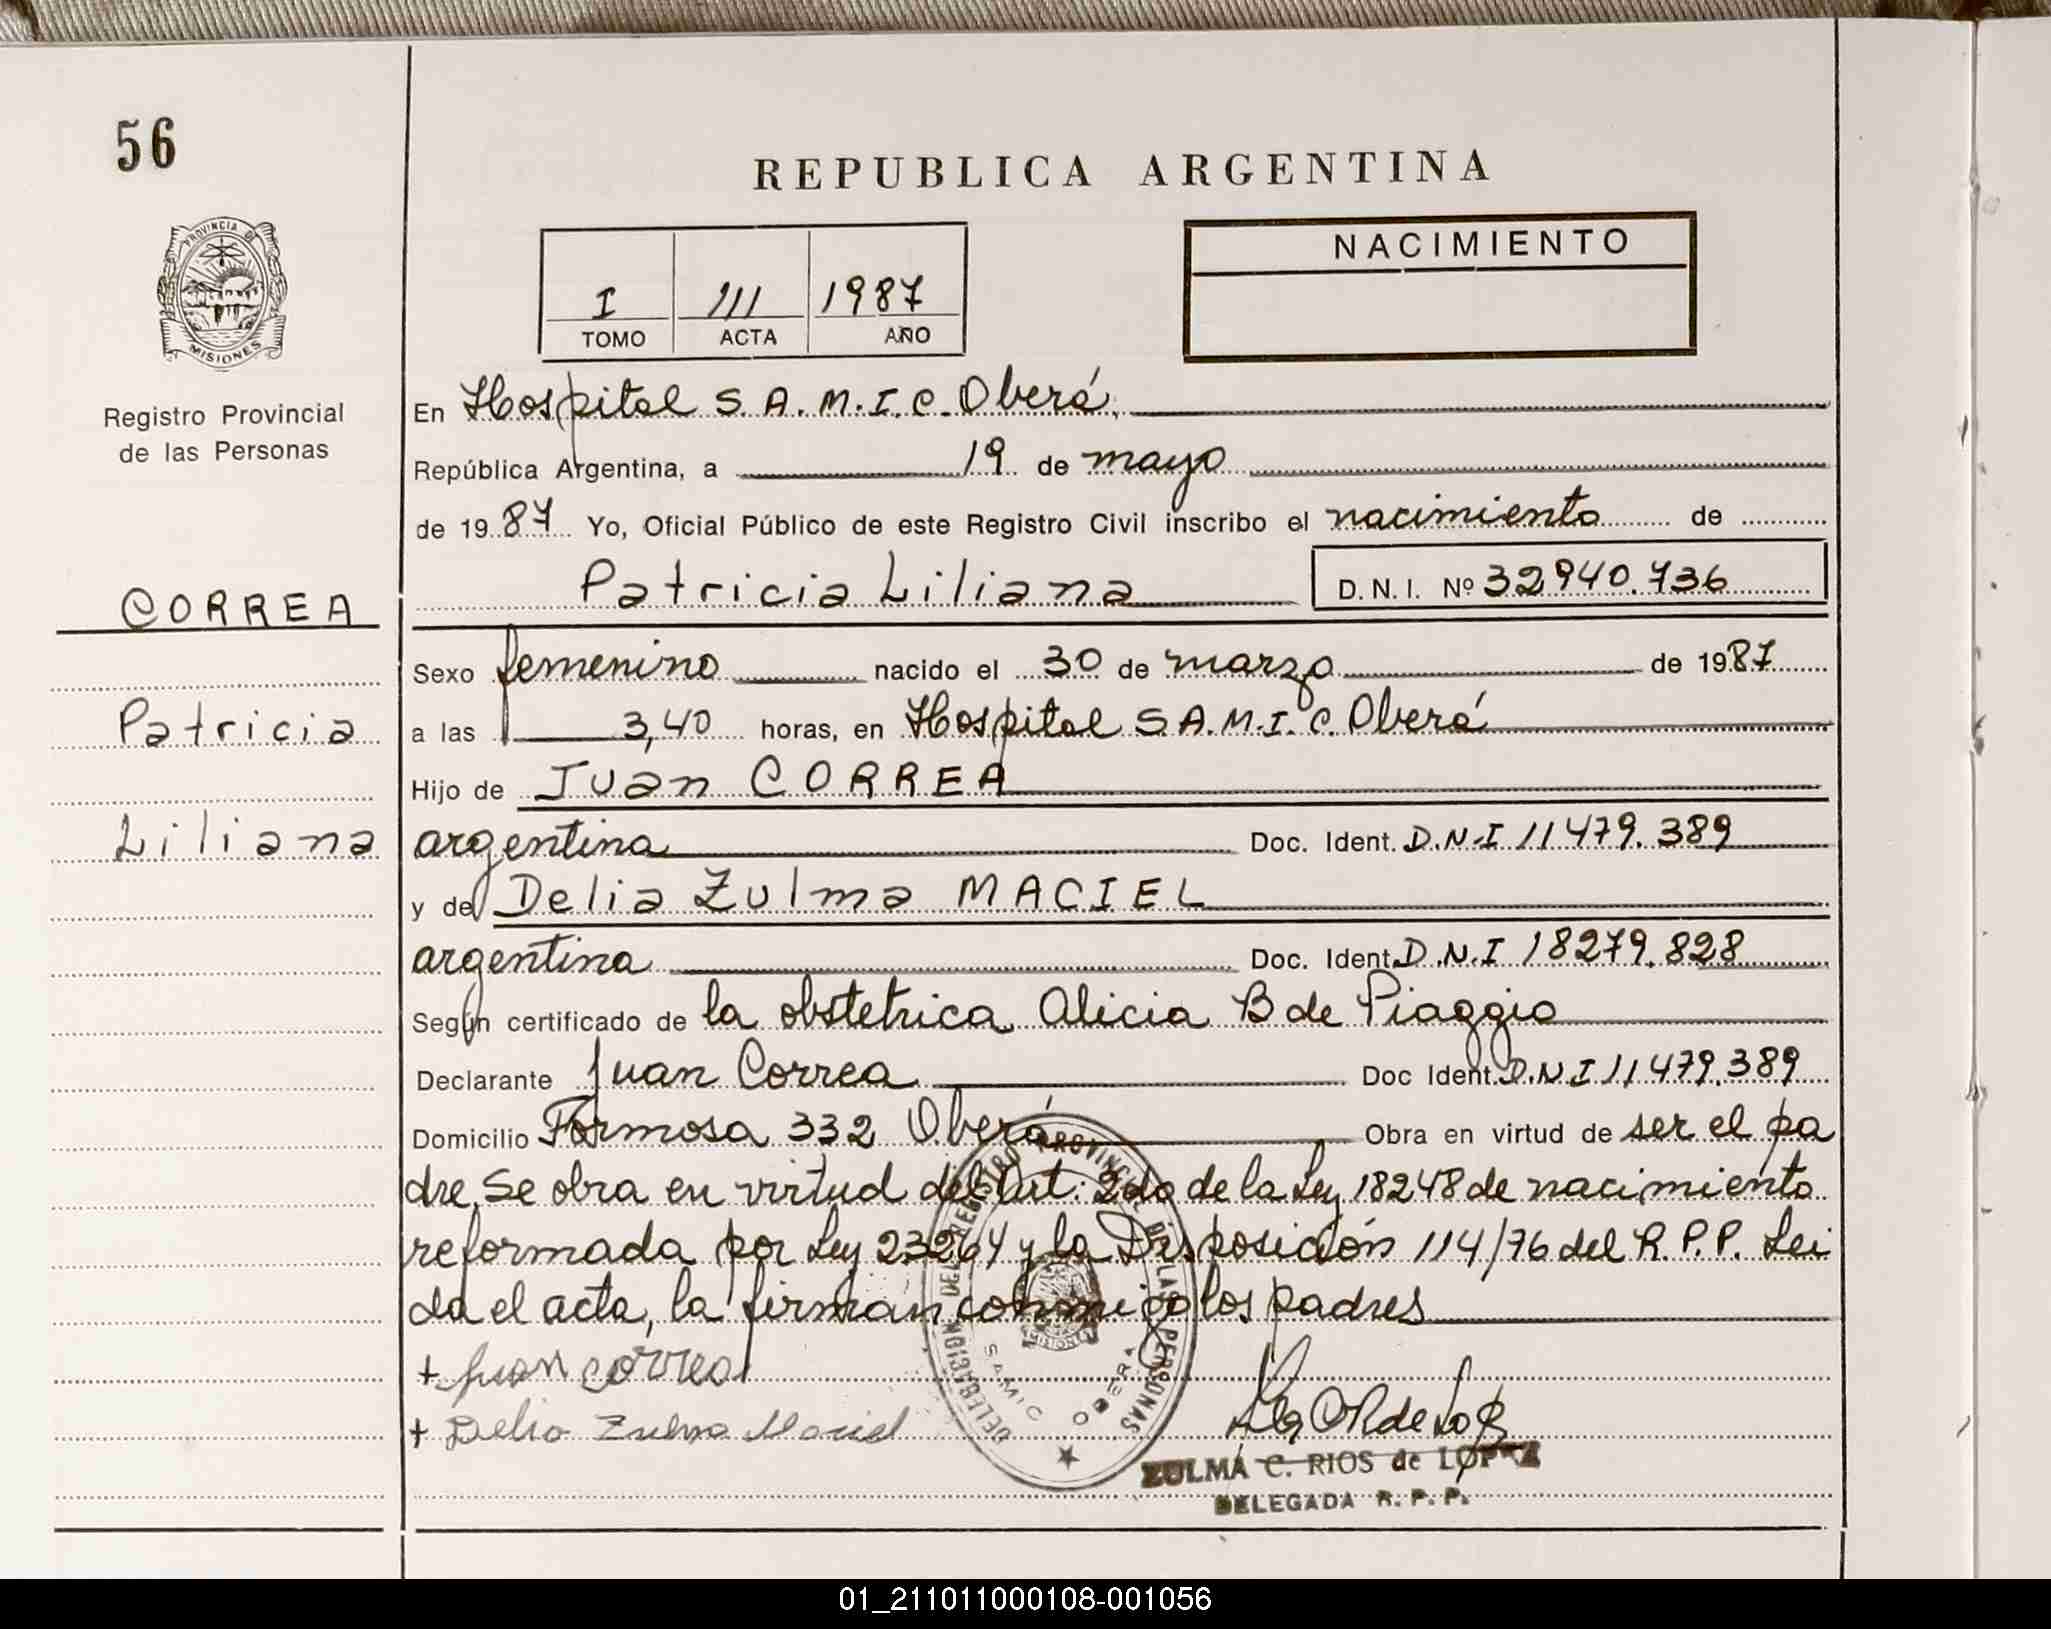 56
REPUBLICA ARGENTINA
NACIMIENTO
I 111 1987
TOMO ACTA AÑO
PROVINCIA DE
MISIONES
Registro Provincial
de las Personas
CORREA
Patricia
Liliana
En Hospital S.A.M.I.C. Oberá,
República Argentina, a 19 de mayo
de 1987 Yo, Oficial Público de este Registro Civil inscribo el nacimiento de
Patricia Liliana D.N.I. Nº 32940.736
Sexo femenino nacido el 30 de marzo de 1987
a las 3,40 horas, en Hospital S.A.M.I.C. Oberá
Hijo de Juan CORREA
argentina Doc. Ident. D.N.I 11479.389
y de Delia Zulma MACIEL
argentina Doc. Ident. D.N.I 18279.828
Según certificado de la obstetrica Alicia B de Piaggio
Declarante Juan Correa Doc Ident. D.N.I 11479.389
Domicilio Formosa 332 Oberá Obra en virtud de ser el pa
dre. Se obra en virtud del Art. 2do de la Ley 18248 de nacimiento
reformada por Ley 23264 y la Disposición 114/76 del R.P.P. Lei
da el acta, la firman conmigo los padres
+ Juan Correa
+ Delia Zulma Maciel
DELEGACION DEL REGISTRO PROVINCIAL DE LAS PERSONAS
SAMIC OBERA
MISIONES
ZULMA C. RIOS de LOPEZ
DELEGADA R.P.P.
01_211011000108-001056